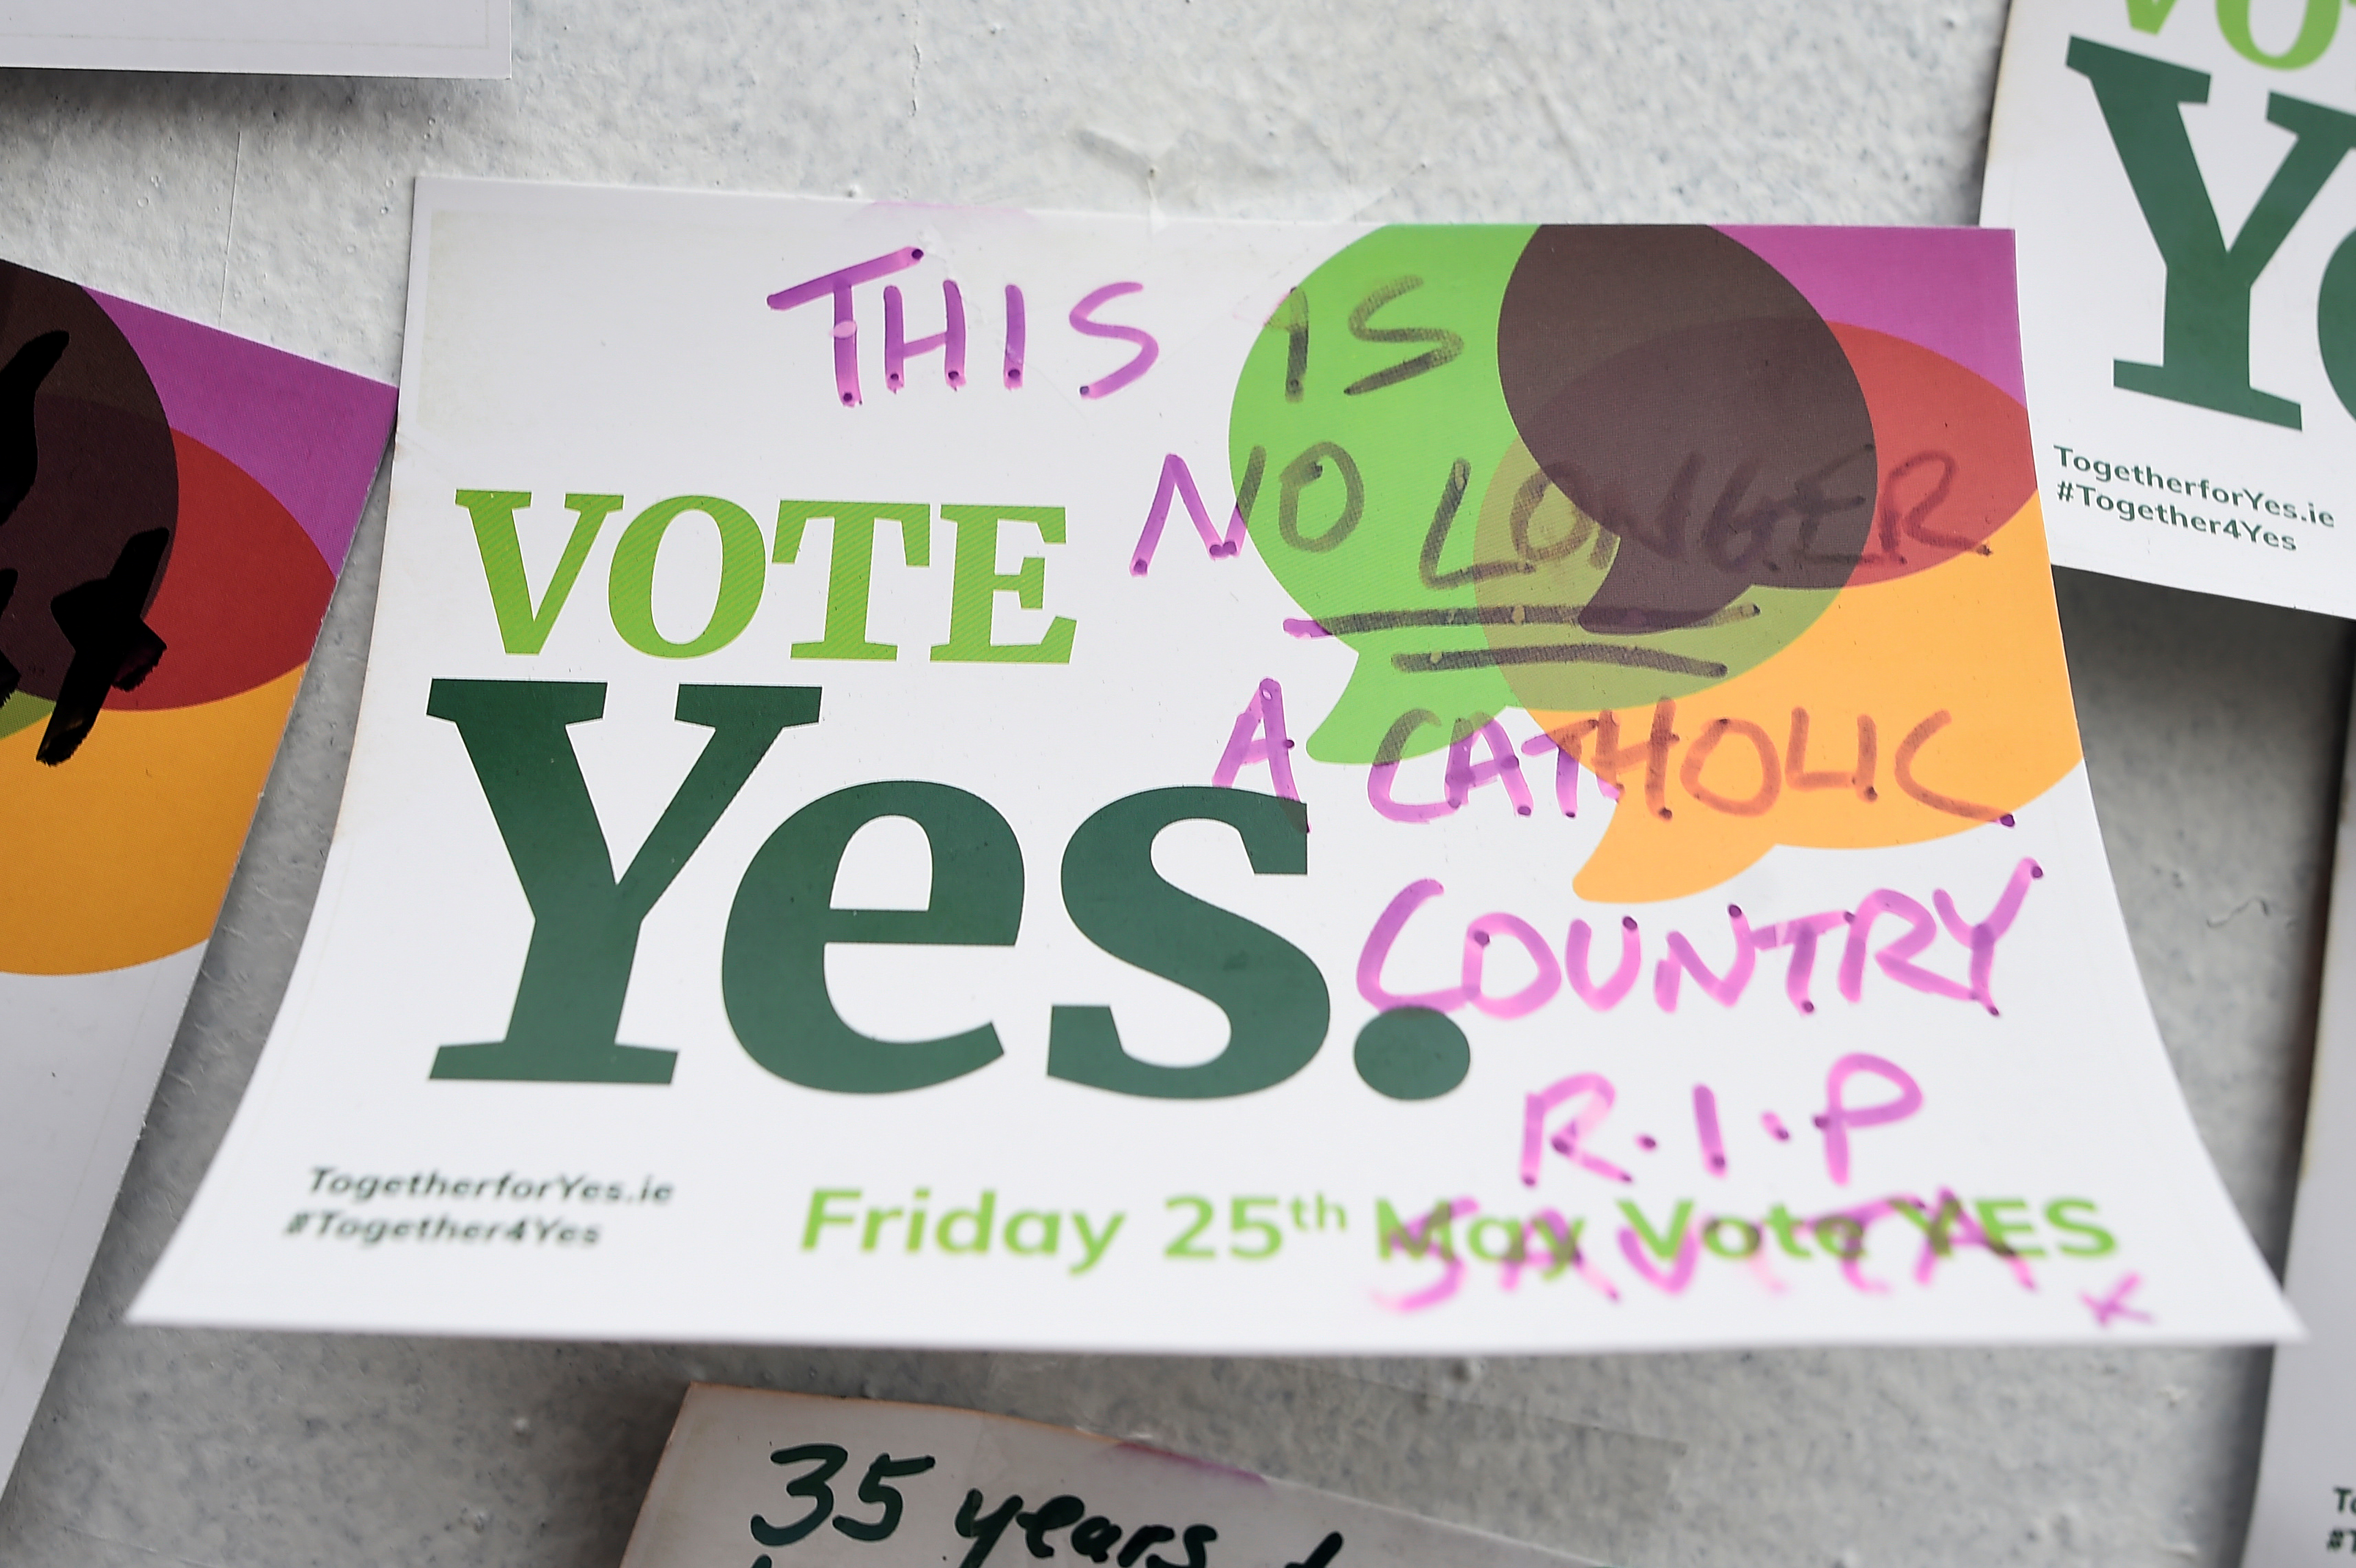 VO
Yes
TogetherforYes.ie
#Together4Yes
THIS IS
NO LONGER
A CATHOLIC
COUNTRY
R.I.P
SAVITA x
VOTE
Yes.
TogetherforYes.ie
#Together4Yes
Friday 25th May Vote YES
35 years